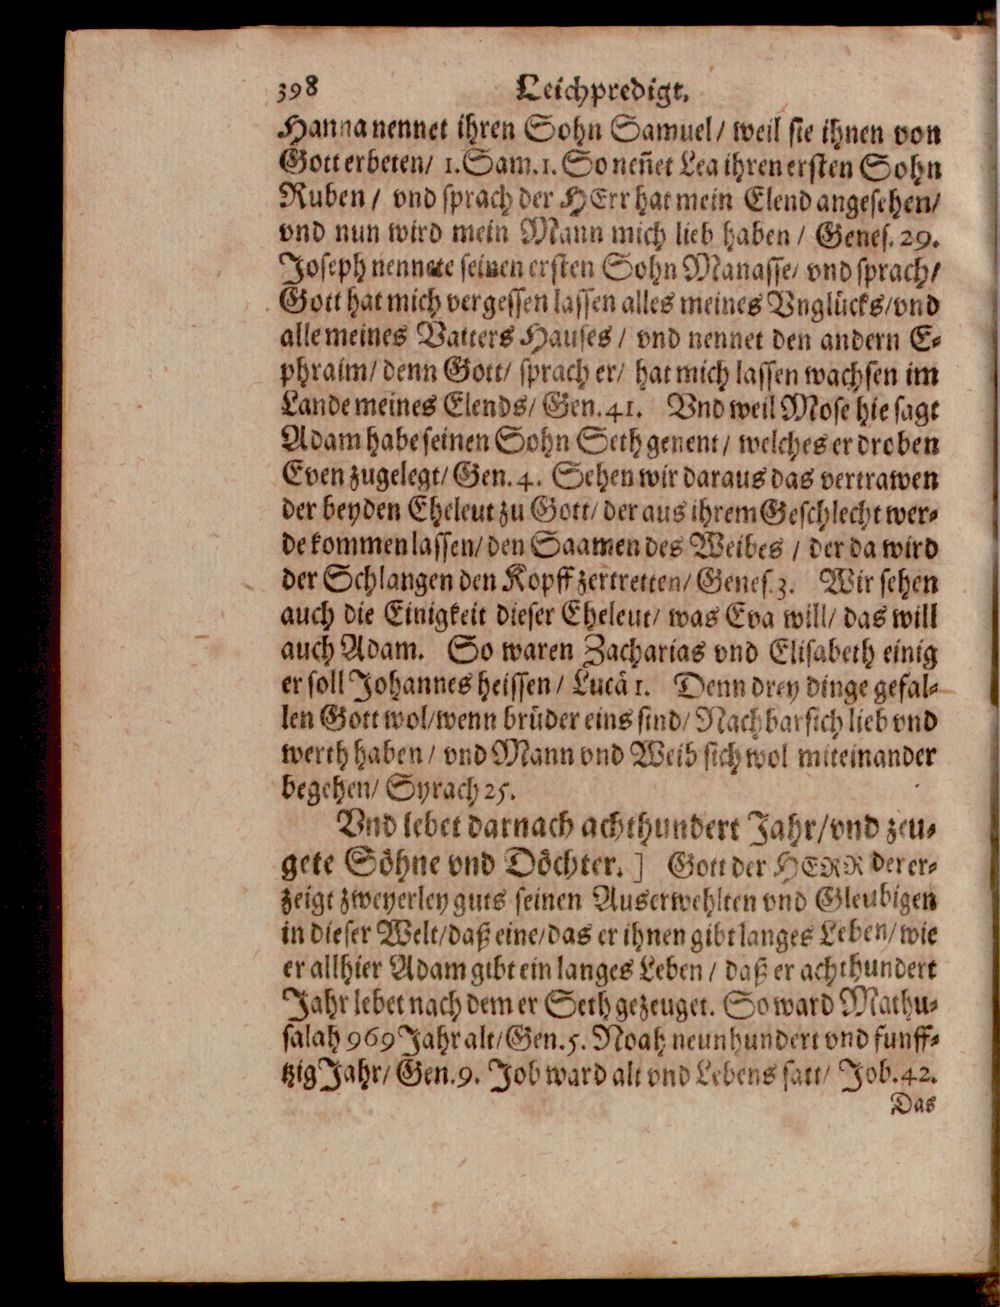 398 Leichpredigt.
Hanna nennet ihren Sohn Samuel/ weil sie ihnen von
Gott erbeten/ 1. Sam. 1. So neñet Lea ihren ersten Sohn
Ruben/ vnd sprach der HErr hat mein Elend angesehen/
vnd nun wird mein Mann mich lieb haben/ Genes. 29.
Joseph nennete seinen ersten Sohn Manasse/ vnd sprach/
Gott hat mich vergessen lassen alles meines Vnglücks/ vnd
alle meines Vatters Hauses/ vnd nennet den andern E-
phraim/ denn Gott/ sprach er/ hat mich lassen wachsen im
Lande meines Elends/ Gen. 41. Vnd weil Mose hie sagt
Adam habe seinen Sohn Seth genent/ welches er droben
Even zugelegt/ Gen. 4. Sehen wir daraus das vertrawen
der beyden Eheleut zu Gott/ der aus ihrem Geschlecht wer-
de kommen lassen/ den Saamen des Weibes/ der da wird
der Schlangen den Kopff zertretten/ Genes. 3. Wir sehen
auch die Einigkeit dieser Eheleut/ was Eva will/ das will
auch Adam. So waren Zacharias vnd Elisabeth einig
er soll Johannes heissen/ Lucä 1. Denn drey dinge gefal-
len Gott wol/ wenn brüder eins sind/ Nachbar sich lieb vnd
werth haben/ vnd Mann vnd Weib sich wol miteinander
begehen/ Syrach 25.
Vnd lebet darnach achthundert Jahr/ vnd zeu-
gete Söhne vnd Döchter. ] Gott der HERR der er-
zeigt zweyerley guts seinen Auserwehlten vnd Gleubigen
in dieser Welt/ daß eine/ das er ihnen gibt langes Leben/ wie
er allhier Adam gibt ein langes Leben/ daß er achthundert
Jahr lebet nach dem er Seth gezeuget. So ward Mathu-
salah 969 Jahr alt/ Gen. 5. Noah neunhundert vnd funff-
tzig Jahr/ Gen. 9. Job ward alt vnd Lebens satt/ Job. 42.
Das